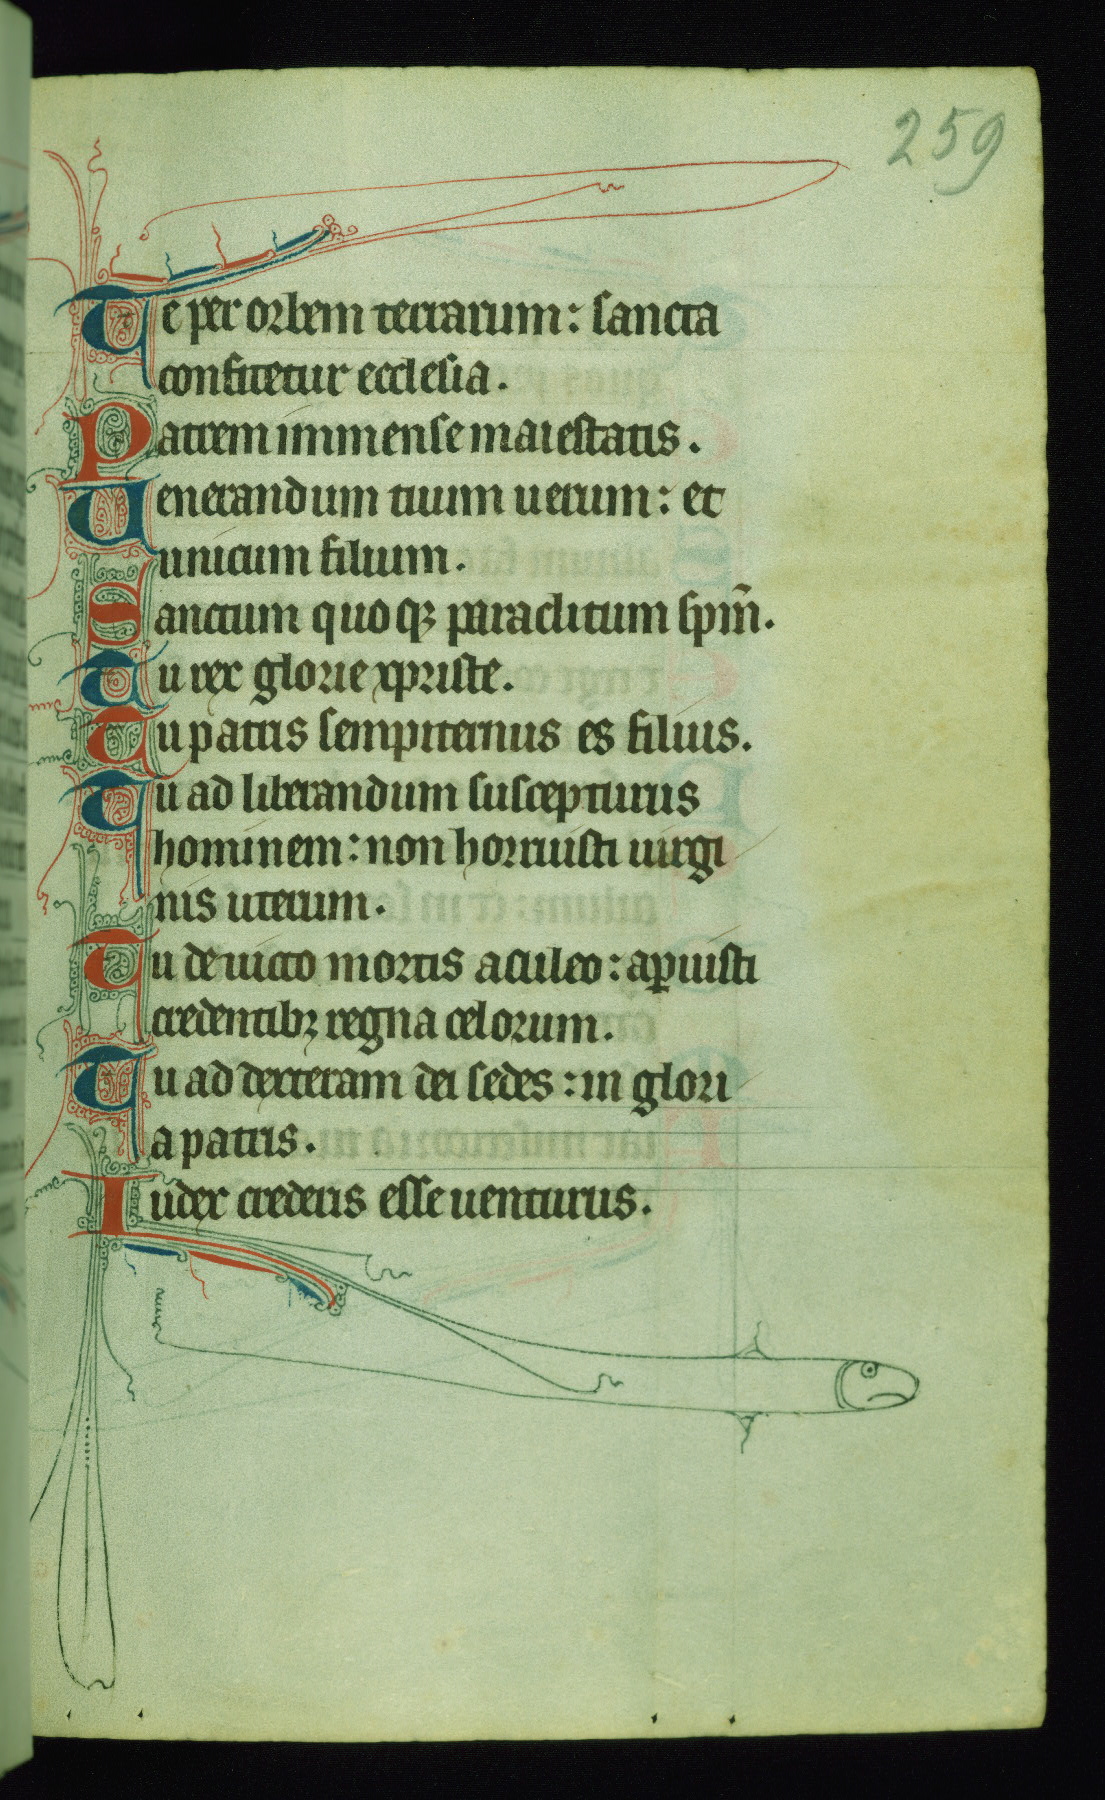 259
Te per orbem terrarum: sancta
confitetur ecclesia.
Patrem immense maiestatis.
Uenerandum tuum uerum: et
unicum filium.
Sanctum quoqꝫ paraclitum sp̄m.
Tu rex glorie xpriste.
Tu patris sempiternus es filius.
Tu ad liberandum suscepturus
hominem: non horruisti uirgi
nis uterum.
Tu deuicto mortis aculeo: aꝑuisti
credentibꝫ regna celorum.
Tu ad dexteram dei sedes: in glori
a patris.
Iudex crederis esse uenturus.